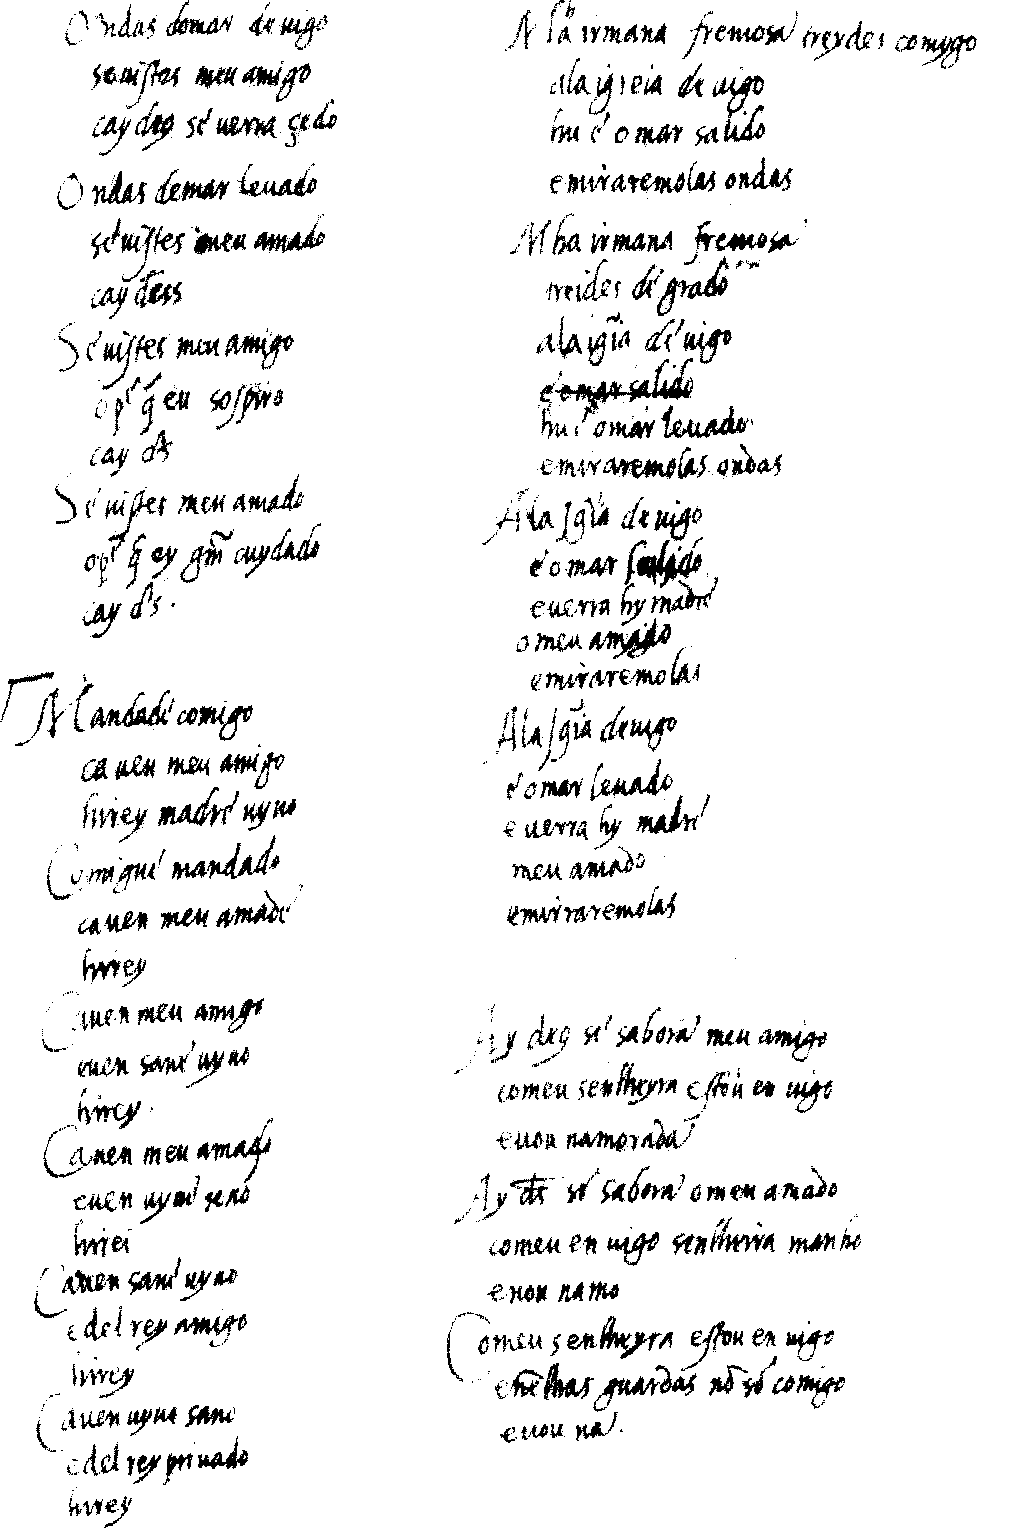 Ondas domar de uigo
seuistes meu amigo
cay deg sé uerra çedo
Ondas demar leuado
seuistes meu amado
cay dess
Sé uistes meu amigo
opr̃ q̃ eu sospiro
cay d̃s
Sé uistes meu amado
opr̃ q̃ ey gr̃m cuydado
cay d̃s.
Mandadé comigo
ca uen meu amigo
hirey madré uyuo
Comigué mandado
cauen meu amado
hirey
Cauen meu amigo
euen sané uyuo
hirey.
Cauen meu amado
euen uyué sano
hirei
Cauen sané uyuo
edel rey amigo
hirey
Cauen uyué sano
edel rey priuado
hirey
Mh̃a irmana fremosa treydes comygo
ala igreia de uigo
hu é o mar salido
emiraremolas ondas
Mha irmana fremosa
treides dé grado
ala igr̃ia dé uigo
é omar salido
hu é omar leuado
emiraremolas ondas
Ala Jgr̃ia de uigo
é omar salido
euerra hy madré
o meu amado
emiraremolas
Ala Jgr̃ia deuigo
é omar leuado
e uerra hy madré
meu amado
emiraremolas
Ay deg sé sabora meu amigo
comeu senlheyra estou en uigo
euou namorada
Ay d̃s sé sabora o meu amado
comeu en uigo senlheira manho
euou namo
Comeu senlheyra estou en uigo
enẽlhas guardas nõ sõ comigo
euou na.